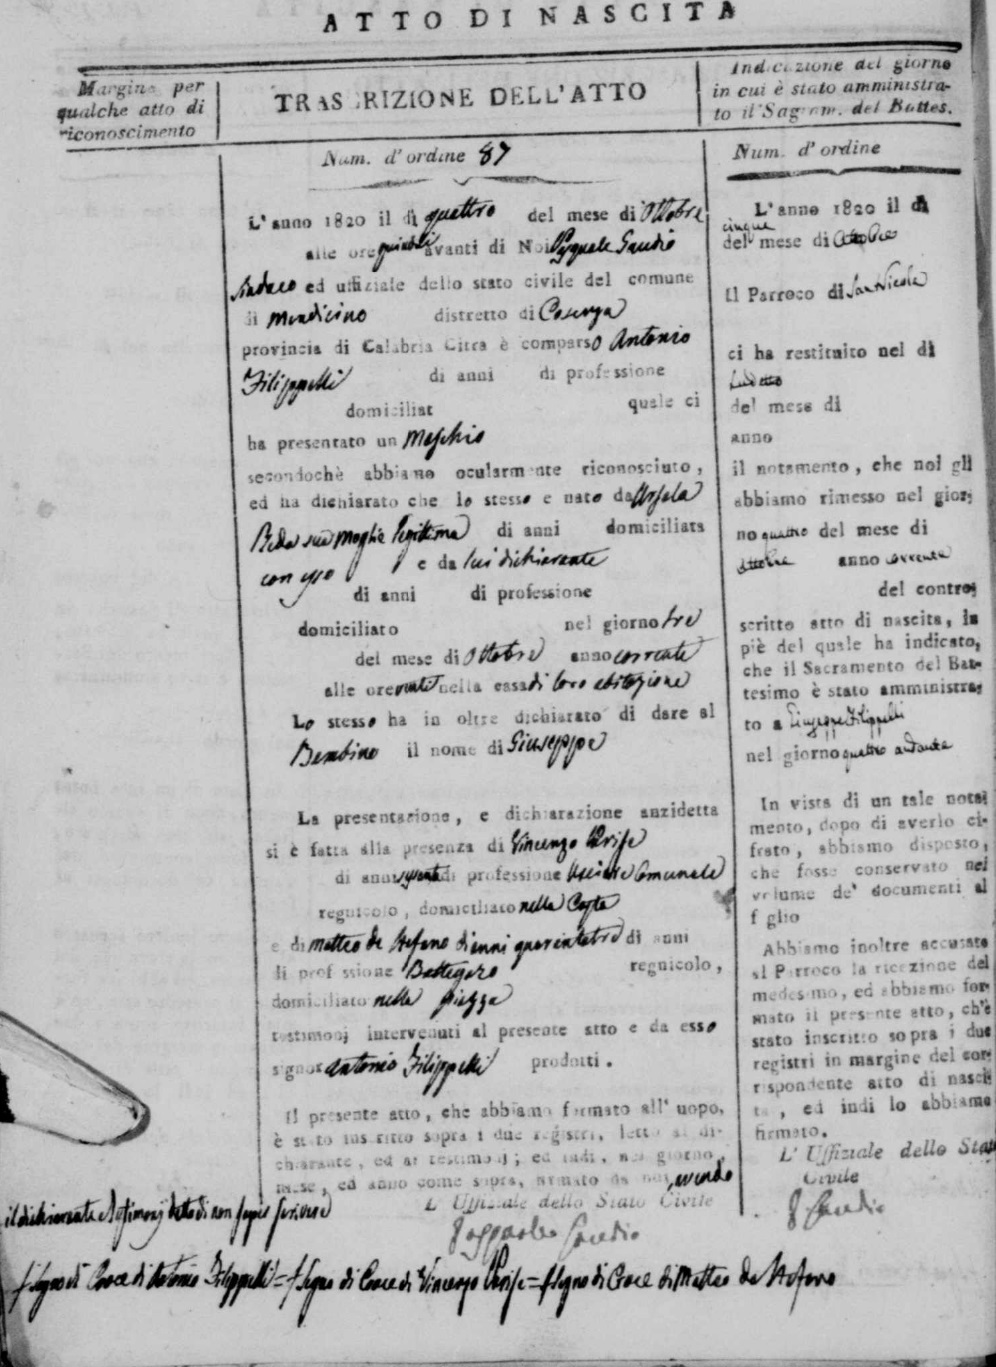 ATTO DI NASCITA
Margine per
qualche atto di
riconoscimento
TRASCRIZIONE DELL'ATTO
Indicazione del giorno
in cui è stato amministra-
to il Sagram. del Battes.
Num. d'ordine 87
L'anno 1820 il dì quattro del mese di Ottobre
alle ore avanti di Noi Pasquale Gaudio
Sindaco ed uffiziale dello stato civile del comune
di Mendicino distretto di Cosenza
provincia di Calabria Citra è comparso Antonio
Filippelli di anni di professione
domiciliat quale ci
ha presentato un Maschio
secondochè abbiamo ocularmente riconosciuto,
ed ha dichiarato che lo stesso e nato da Orsola
Reda sua moglie legittima di anni domiciliata
con esso e da lui dichiarante
di anni di professione
domiciliato nel giorno tre
del mese di Ottobre anno corrente
alle ore venti nella casa di loro abitazione
Lo stesso ha in oltre dichiarato di dare al
Bambino il nome di Giuseppe
La presentazione, e dichiarazione anzidetta
si è fatta alla presenza di Vincenzo Perise
di anni di professione Usciere Comunale
regnicolo, domiciliato nella Costa
e di Matteo de Stefano di anni quarantatre di anni
di prof ssione Bottegaro regnicolo,
domiciliato nella piazza
testimonj intervenuti al presente atto e da esso
signor Antonio Filippelli prodotti.
Il presente atto, che abbiamo formato all'uopo,
è stato inscritto sopra i due registri, letto al di-
chiarante, ed ai testimonj; ed indi, nel giorno,
mese, ed anno come sopra, firmato da noi, avendo
il dichiarante e testimonj detto di non saper scrivere
L'Uffiziale dello Stato Civile
Pasquale Gaudio
† Segno di Croce di Antonio Filippelli = † Segno di Croce di Vincenzo Perise = † Segno di Croce di Matteo de Stefano
Num. d'ordine
L'anno 1820 il dì
cinque
del mese di Ottobre
Il Parroco di San Nicola
ci ha restituito nel dì
suddetto
del mese di
anno
il notamento, che noi gli
abbiamo rimesso nel gior-
no quattro del mese di
Ottobre anno corrente
del contro-
scritto atto di nascita, in
piè del quale ha indicato,
che il Sacramento del Bat-
tesimo è stato amministra-
to a Giuseppe Filippelli
nel giorno quattro andante
In vista di un tale nota-
mento, dopo di averlo ci-
frato, abbiamo disposto,
che fosse conservato nel
volume de' documenti al
f glio
Abbiamo inoltre accusato
al Parroco la ricezione del
medesimo, ed abbiamo for-
mato il presente atto, ch'è
stato inscritto sopra i due
registri in margine del cor-
rispondente atto di nasci-
ta, ed indi lo abbiamo
firmato.
L'Uffiziale dello Stato
Civile
P Gaudio